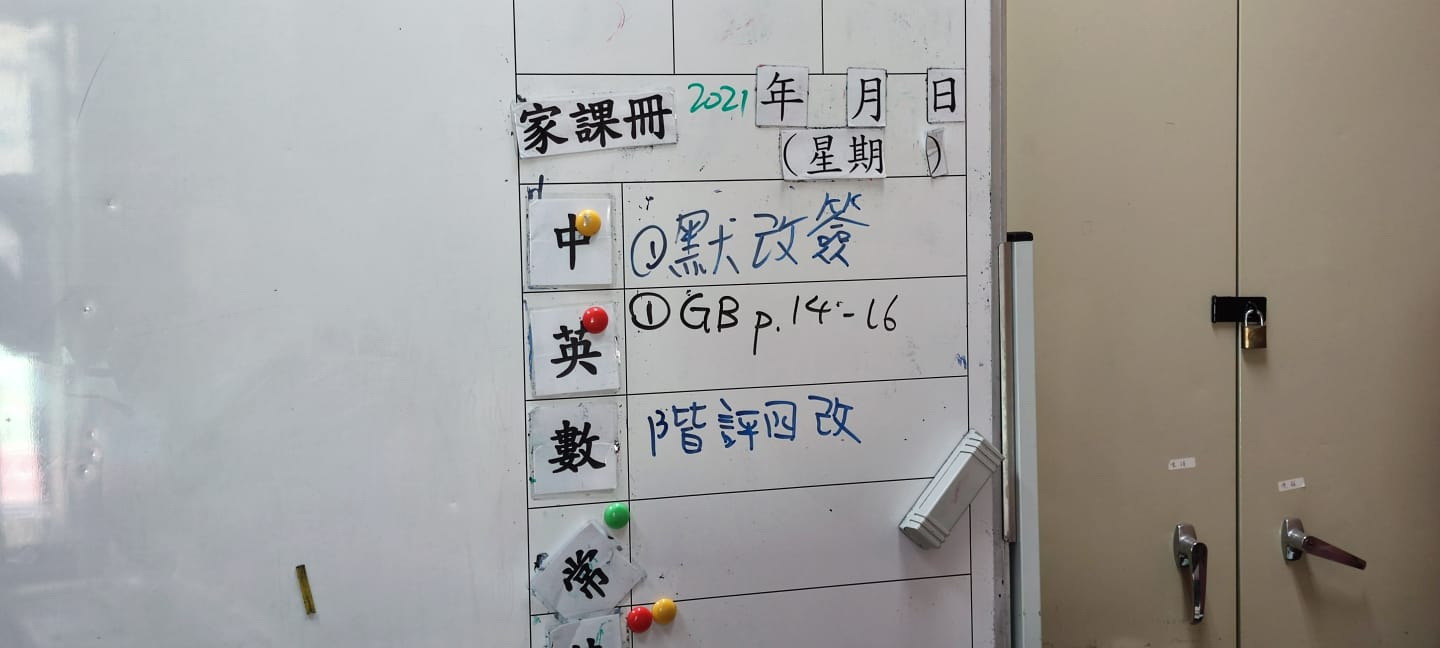 家課冊 2021 年 月 日
(星期 )
中 ①默改簽
英 ①GB p.14-16
數 階評四改
常